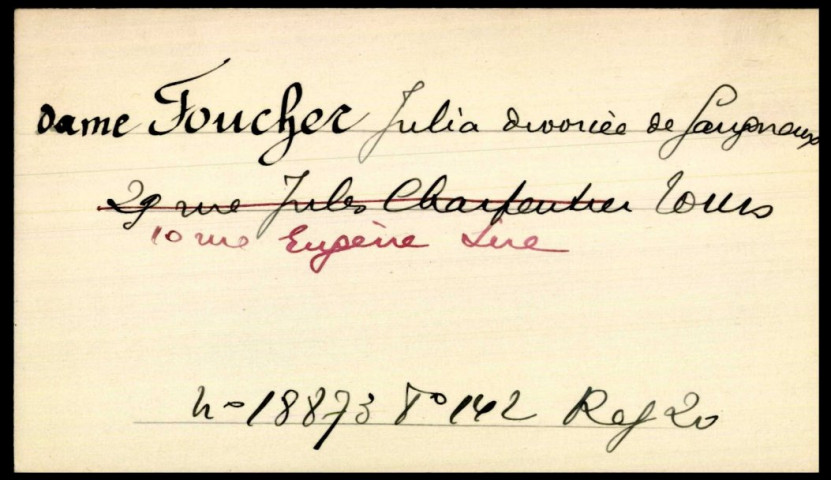 Dame Foucher Julia divorcée de
29 rue Jules Charpentier Tours
10 rue Eugène Süe
No 18873 Fo 142 Reg 20